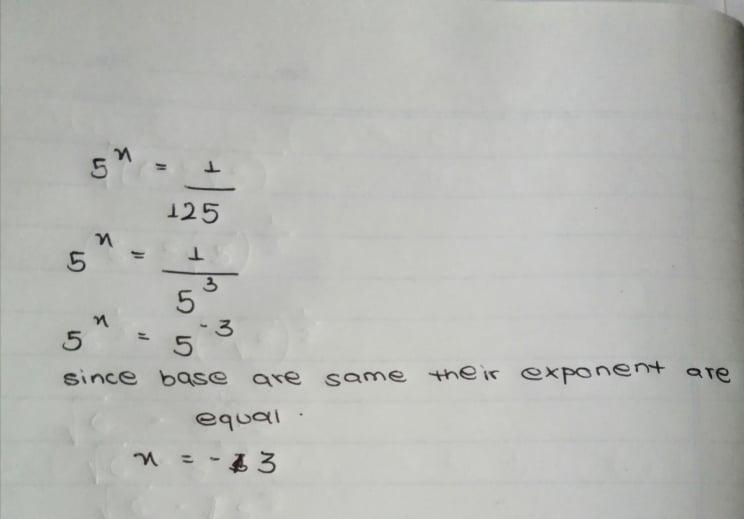 5^n = 1/125
5^n = 1/5^3
5^n = 5^-3
since base are same their exponent are
equal.
n = -3